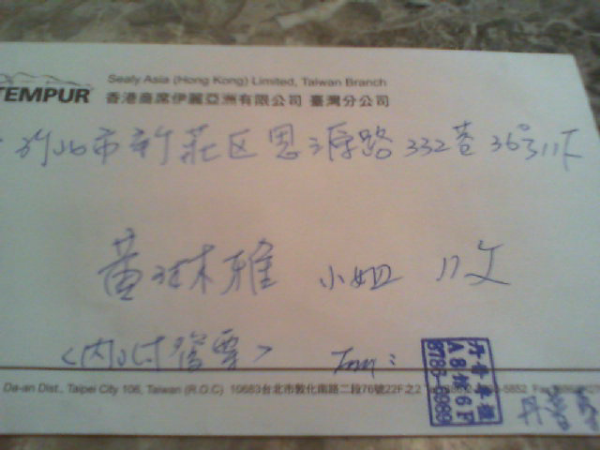 TEMPUR
Sealy Asia (Hong Kong) Limited, Taiwan Branch
香港商席伊麗亞洲有限公司 臺灣分公司
新北市新莊区思源路332巷36号11F
黃琳雅 小姐 收
<內附發票>
Da-an Dist., Taipei City 106, Taiwan (R.O.C) 10683台北市敦化南路二段76號22F之2
A8館6F